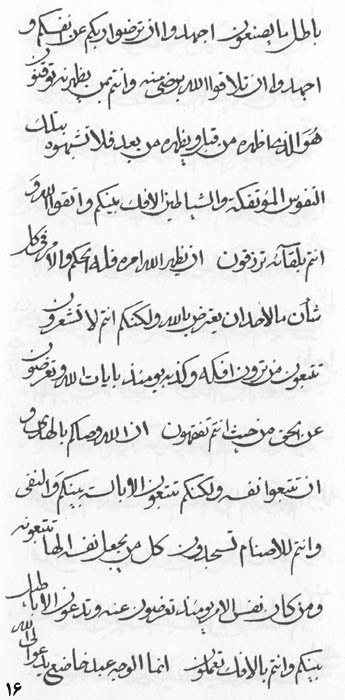 باطل ما يصنعون اجهدوا ان ترضوا ربكم عن نفسكم و
اجهدوا ان تلاقوا الله برضى منه وانتم بمن يظهره توقنون
هو الذى اظهره من قبل ويظهره من بعد فلا تشبهوه بتلك
النفوس المؤتفكة والشياطين الافك بينكم واتقوا الله و
انتم بلقآئه ترزقون ان يظهر الله امره فله الحكم والامر فى كل
شأن ما لاحد ان يعترض بالله ولكنكم انتم لا تشعرون
تتبعون من ترون افكه وكذبه يومئذ بايات الله وتعرضون
عن الحق من حيث انتم تفقهون ان الله وصاكم بالهدى و
ان تتبعوا نفسه ولكنكم تتبعون الابالسة بينكم والنفى
وانتم للاصنام تسجدون كل من يجعل نفسه الها تتبعونه
ومن كان نفس الامر يومئذ تعرضون عنه وتدعون الاباطيل
بينكم وانتم بالافك تعملون انما الوجه عبد خاضع يدعوا الى الله
۱۶